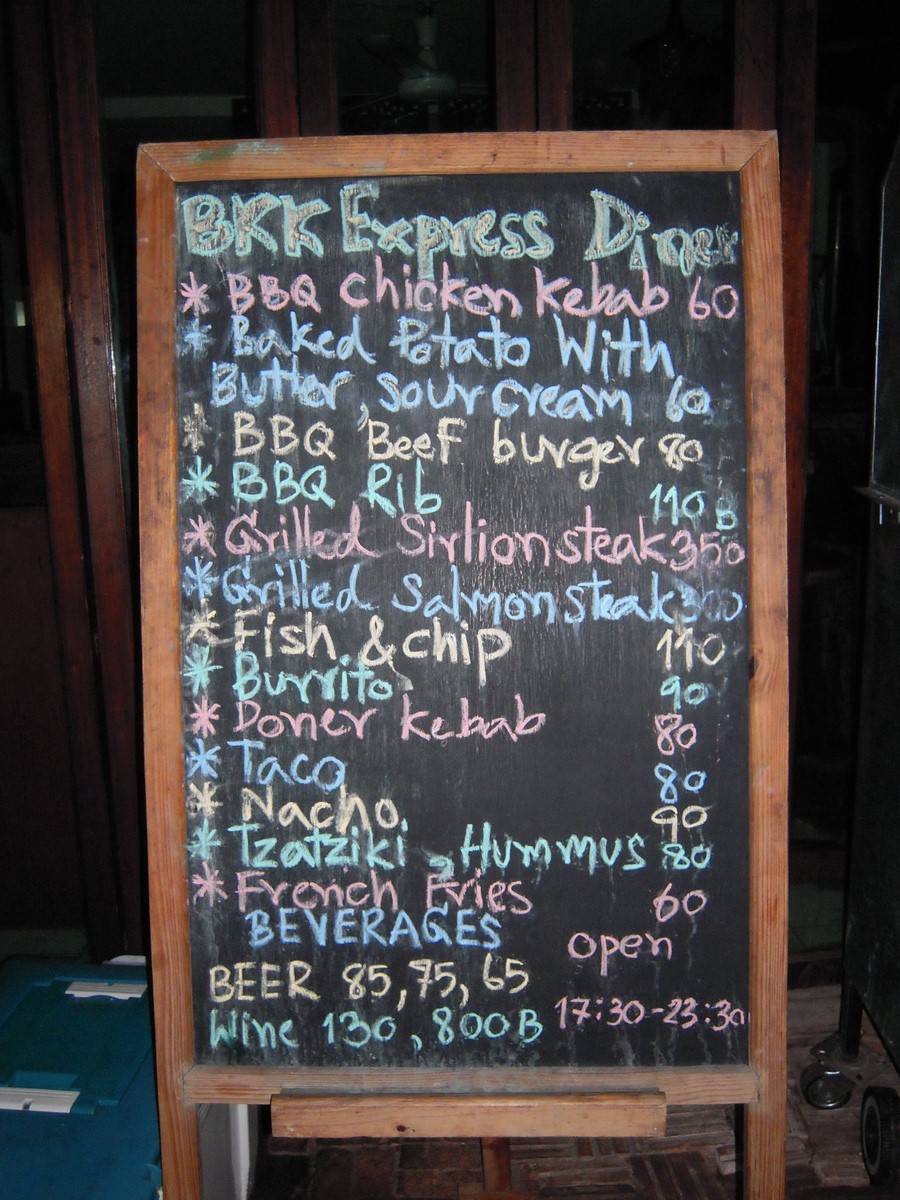 BKK Express Diner
* BBQ chicken kebab 60
* Baked Potato With
Butter, sour cream 60
* BBQ Beef burger 80
* BBQ Rib 110 B
* Grilled Sirlion steak 350
* Grilled Salmon steak 300
* Fish & chip 110
* Burrito 90
* Doner kebab 80
* Taco 80
* Nacho 90
* Tzatziki, Hummus 80
* French Fries 60
BEVERAGES
open
BEER 85, 75, 65
17:30-23:30
Wine 130, 800B